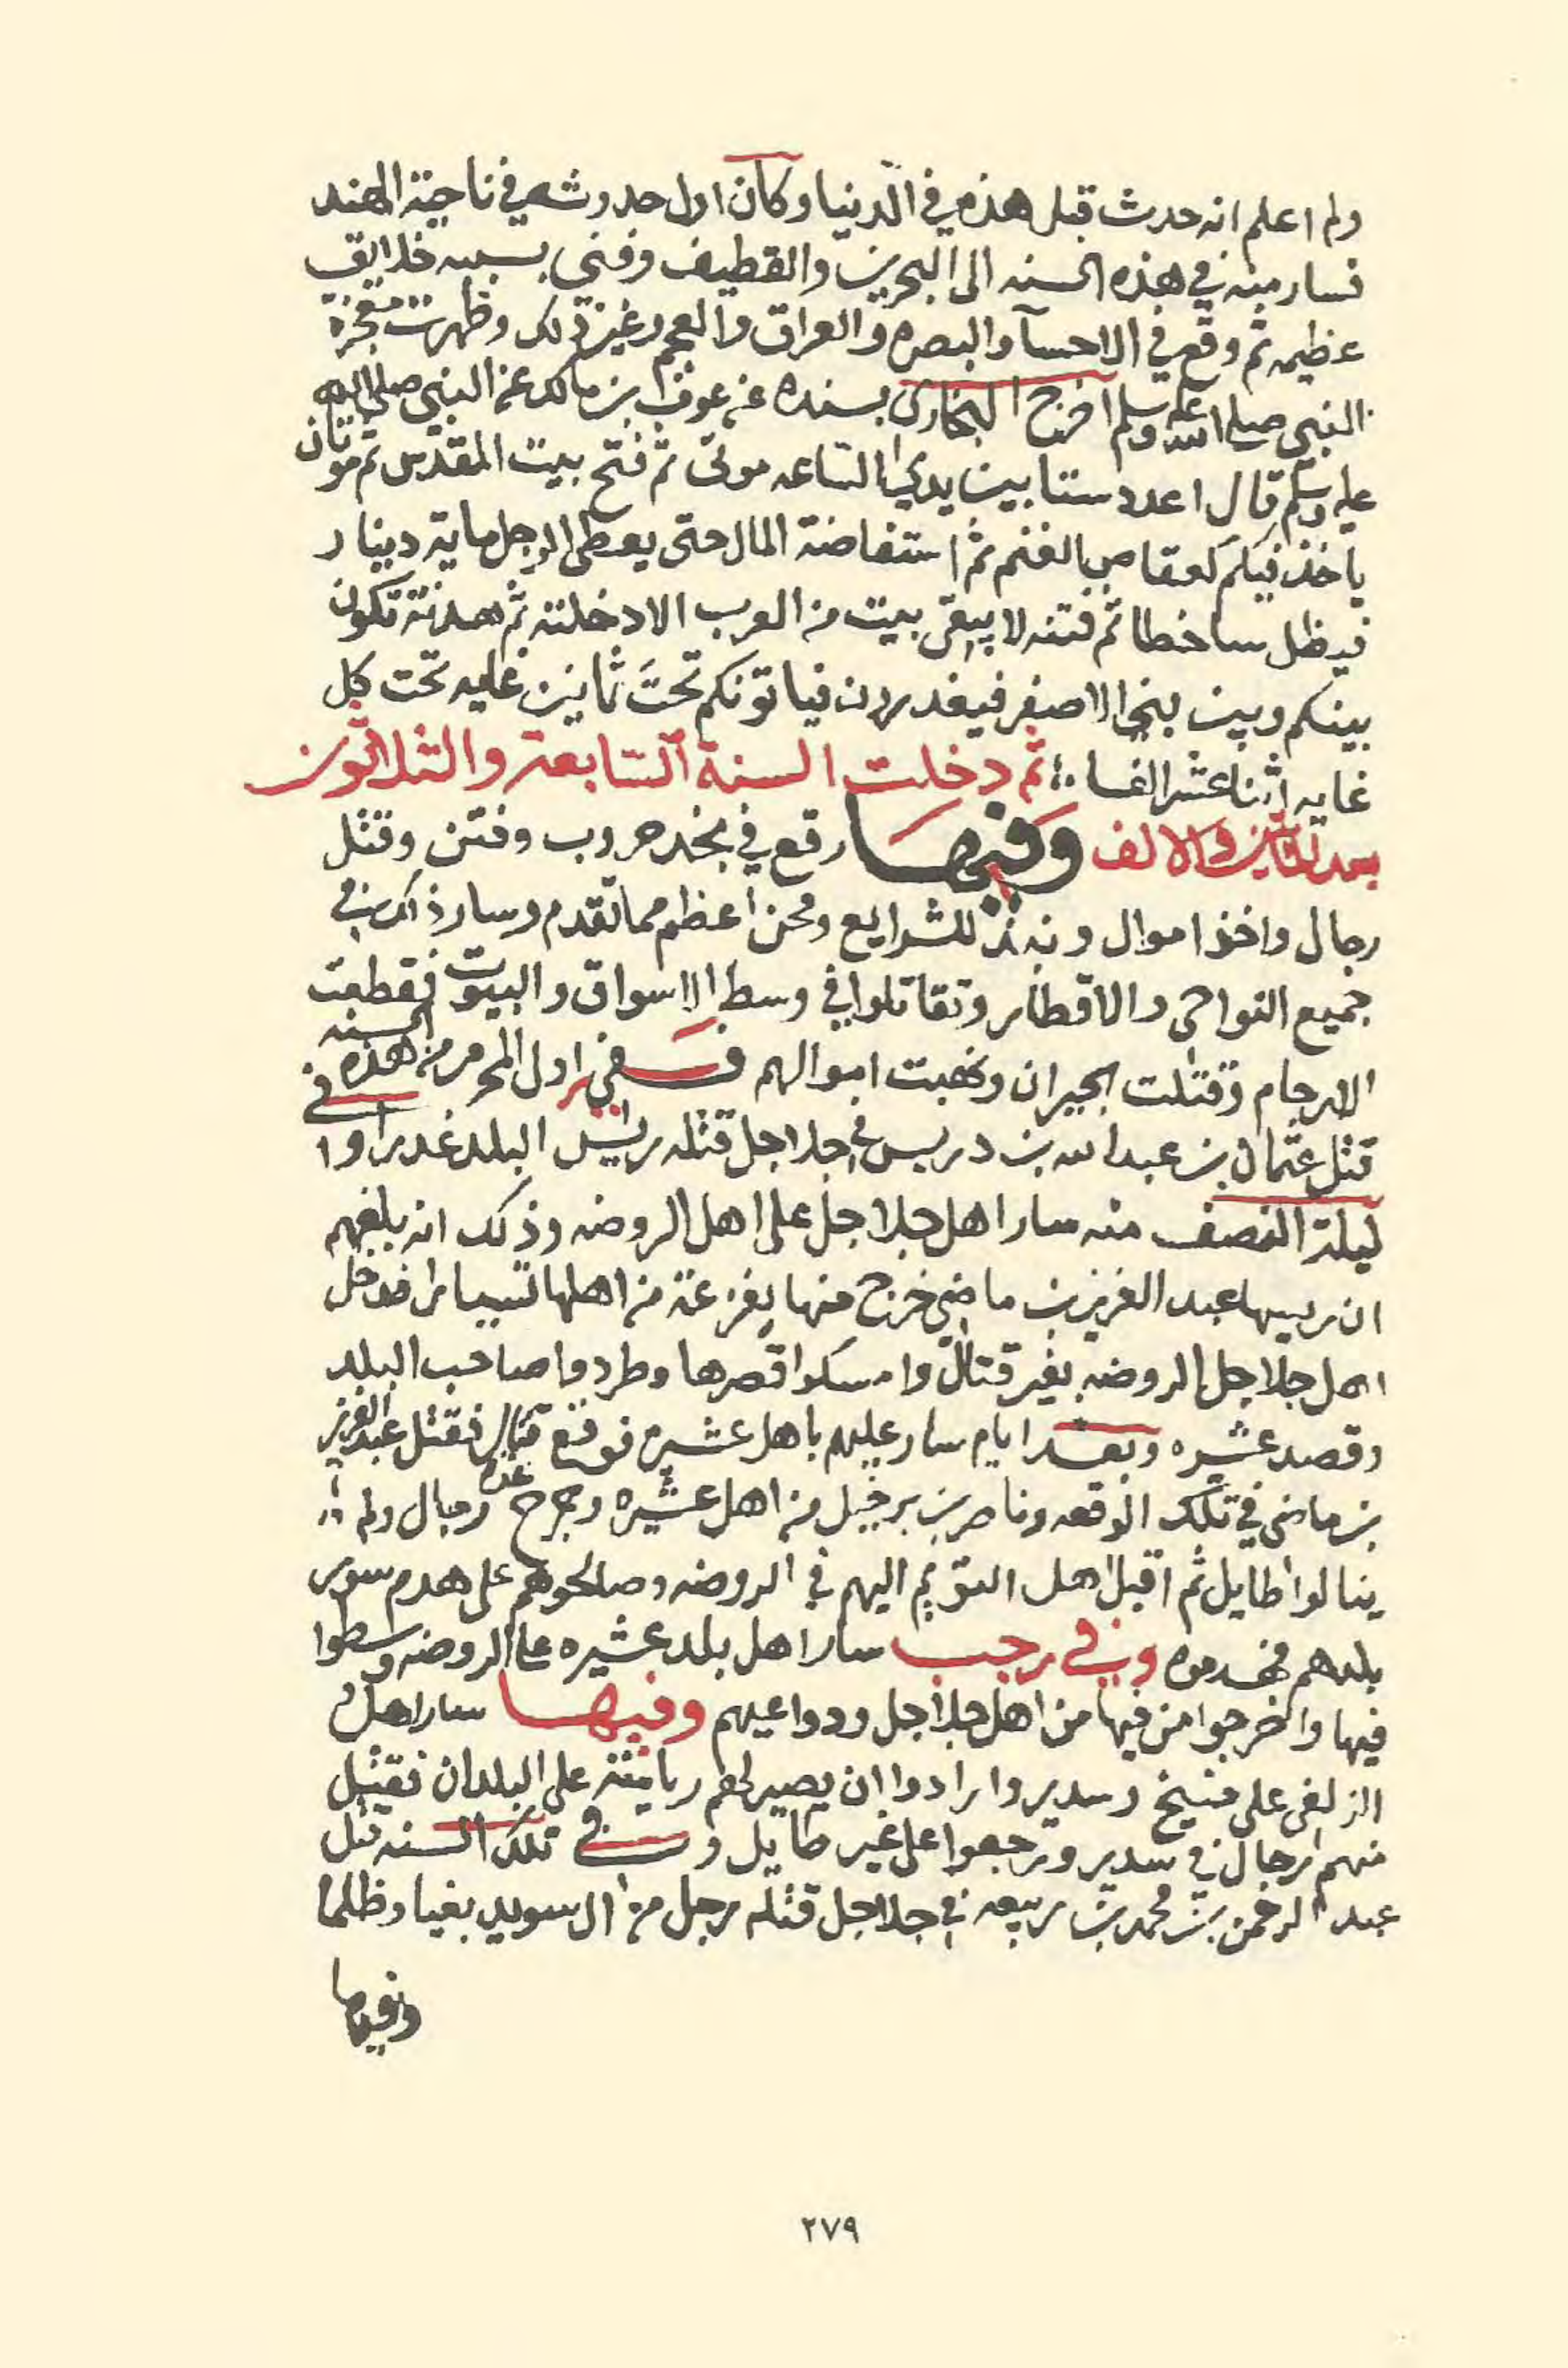 ولم اعلم انه حدث قبل هذه في الدنيا وكان اول حدوثه في ناحية الهند
فسار منه في هذه السنه الى البحرين والقطيف وفني بسببه خلايق
عظيمه ثم وقع في الاحسآ والبصره والعراق والعجم وغير ذلك وظهرت معجزة
النبي صلى الله عليه وسلم اخرج البخاري بسنده عن عوف ابن مالك عن النبي صلى الله
عليه وسلم قال اعدد ستا بين يدي الساعه موتى ثم فتح بيت المقدس ثم موتان
ياخذ فيكم كعقاص الغنم ثم استفاضة المال حتى يعطى الرجل ماية دينار
فيظل ساخطا ثم فتنه لا يبقى بيت من العرب الا دخلته ثم هدنة تكون
بينكم وبين بني الاصفر فيغدرون فياتونكم تحت ثمانين غايه تحت كل
غايه اثنا عشر الفا ثم دخلت السنة السابعة والثلاثون
بعد المائتين والالف وفيها وقع في نجد حروب وفتن وقتل
رجال واخذ اموال ونبذ للشرايع ومحن اعظم مما تقدم وسار ذلك في
جميع النواحي والاقطار وتقاتلوا في وسط الاسواق والبيوت فقطعت
الارحام وقتلت الجيران ونهبت اموالهم ففي اول المحرم من هذه السنه
قتل عثمان بن عبدالله بن دريس في جلاجل قتله رييس البلد غدرا وفي
ليلة النصف منه سار اهل جلاجل على اهل الروضه وذلك انه بلغهم
ان رييسها عبد العزيز بن ماضي خرج منها بفزعة من اهلها فدخل
اهل جلاجل الروضه بغير قتال وامسكوا قصرها وطردوا صاحب البلد
وقصد عشيره وبعد ايام سار عليهم باهل عشيره فوقع قتال فقتل عبد العزيز
بن ماضي في تلك الوقعه وناصر بن برخيل من اهل عشيره وجرح عدة رجال ولم
ينالوا طايل ثم اقبل اهل التويم اليهم في الروضه وصالحوهم على هدم سور
بلدهم فهدموه وفي رجب سار اهل بلد عشيره على الروضه وسطوا
فيها واخرجوا من فيها من اهل جلاجل ودواعيهم وفيها سار اهل
الزلفي على منيخ وسدير وارادوا ان يصير لهم رياسة على البلدان فقتل
منهم رجال في سدير ورجعوا على غير طايل وفي تلك السنه قتل
عبد الرحمن بن محمد بن ربيعه في جلاجل قتله رجل من ال سويد بغيا وظلما
وفيها
٢٧٩